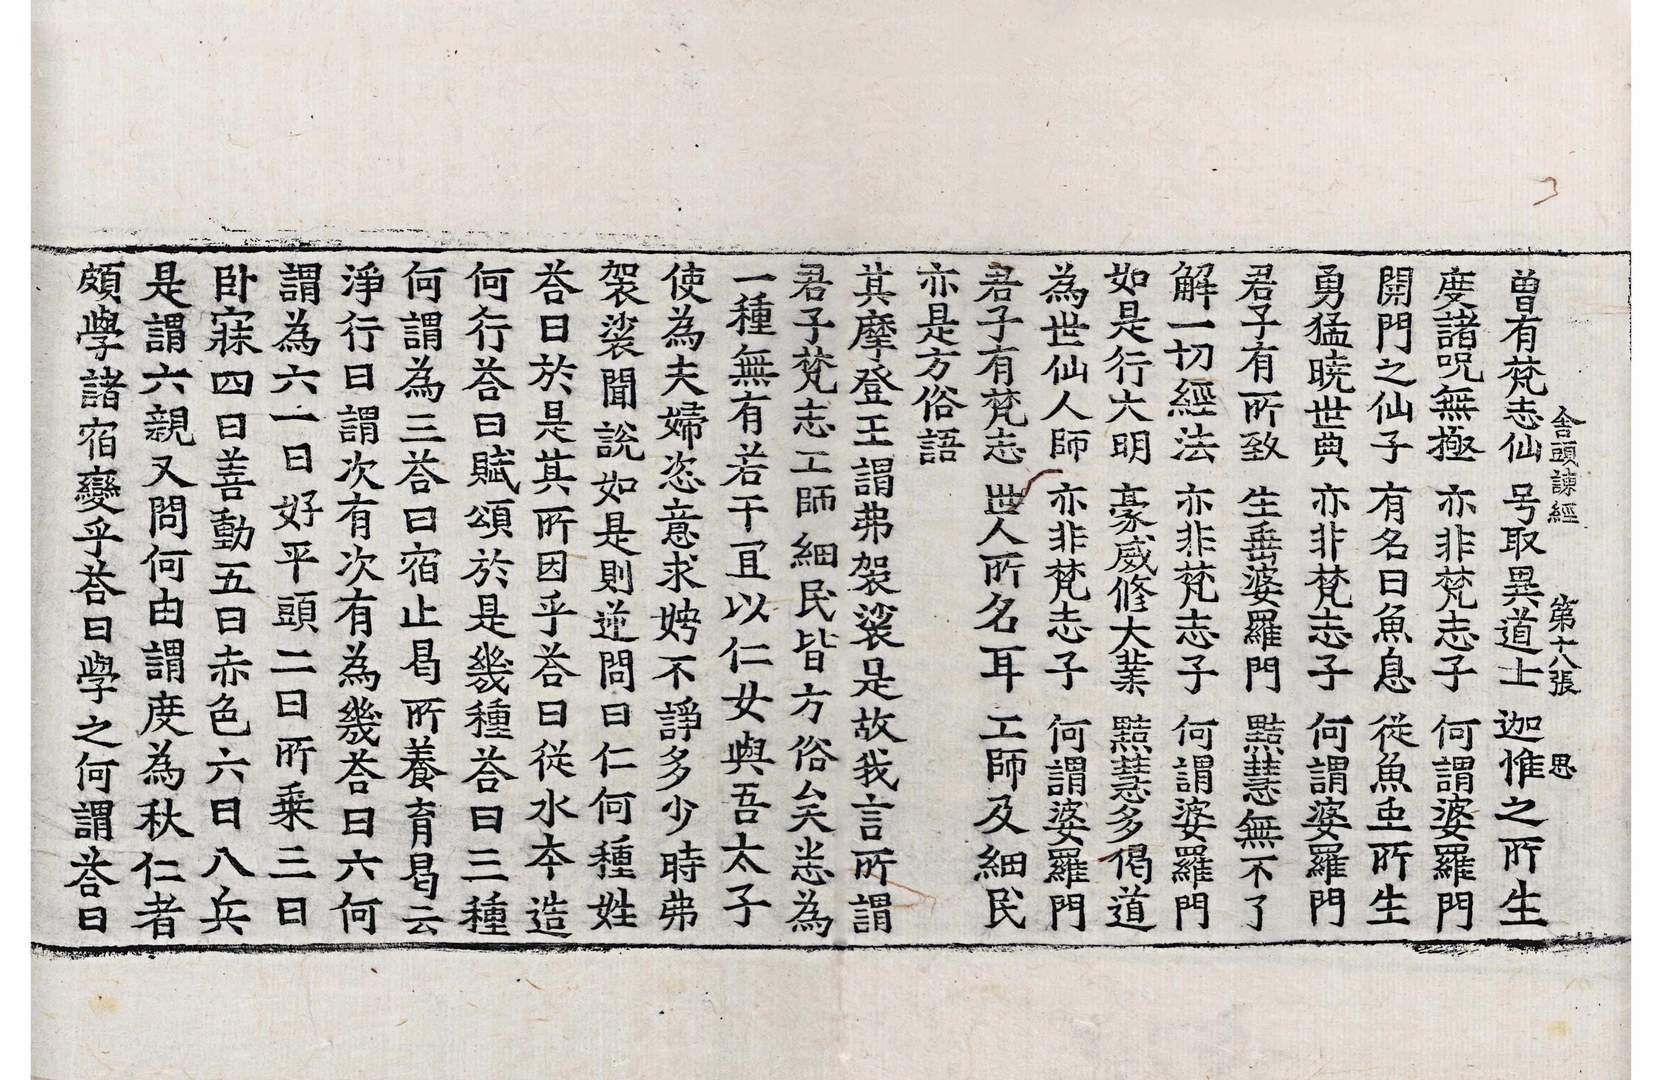 舎頭諌經 第十八張 思
曽有梵志仙 号取異道士 迦惟之所生
度諸呪無極 亦非梵志子 何謂婆羅門
開門之仙子 有名曰魚息 從魚虫所生
勇猛曉世典 亦非梵志子 何謂婆羅門
君子有所致 生垂婆羅門 黠慧無不了
解一切經法 亦非梵志子 何謂婆羅門
如是行六明 豪威修大業 黠慧多偈道
為世仙人師 亦非梵志子 何謂婆羅門
君子有梵志 世人所名耳 工師及細民
亦是方俗語
其摩登王謂弗袈裟是故我言所謂
君子梵志工師細民皆方俗矣悉為
一種無有若干冝以仁女與吾太子
使為夫婦恣意求娉不諍多少時弗
袈裟聞說如是則逆問曰仁何種姓
荅曰於是其所因乎荅曰從水夲造
何行荅曰賦頌於是幾種荅曰三種
何謂為三荅曰宿止曷所養育曷云
淨行曰謂次有次有為幾荅曰六何
謂為六一曰好平頭二曰所乘三曰
卧寐四曰善動五曰赤色六曰八兵
是謂六親又問何由謂度為秋仁者
頗學諸宿變乎荅曰學之何謂荅曰